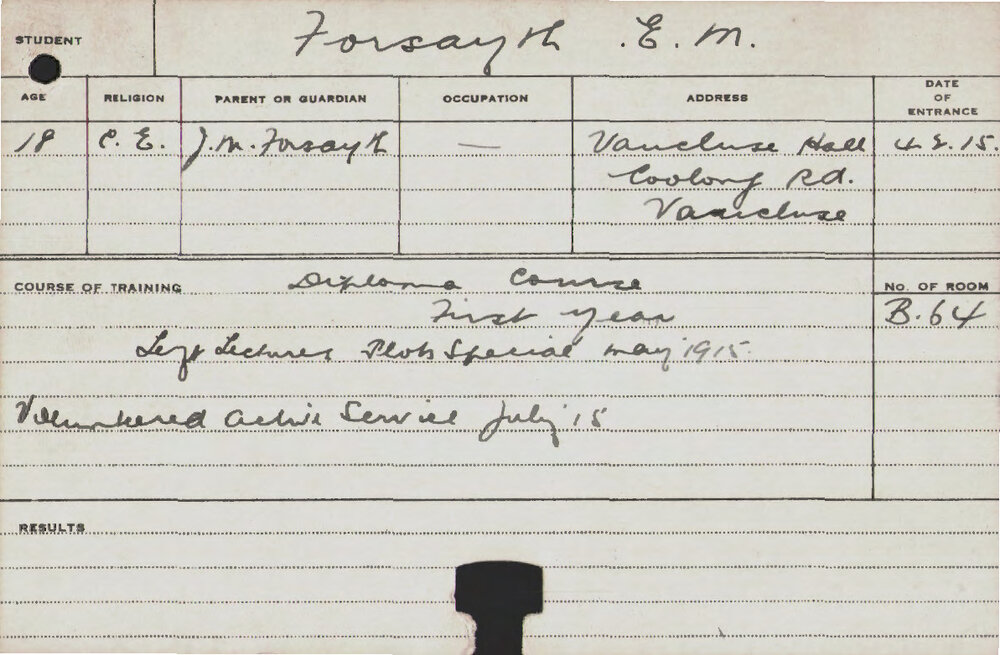 STUDENT Forsayth .E. M.
AGE RELIGION PARENT OR GUARDIAN OCCUPATION ADDRESS DATE OF ENTRANCE
18 C. E. J. M. Forsayth — Vaucluse Hall 4.2.15.
Coolong Rd.
Vaucluse
COURSE OF TRAINING Diploma Course No. OF ROOM
First Year B.64
Left Lectures Special May 1915.
Volunteered Active Service July 15
RESULTS